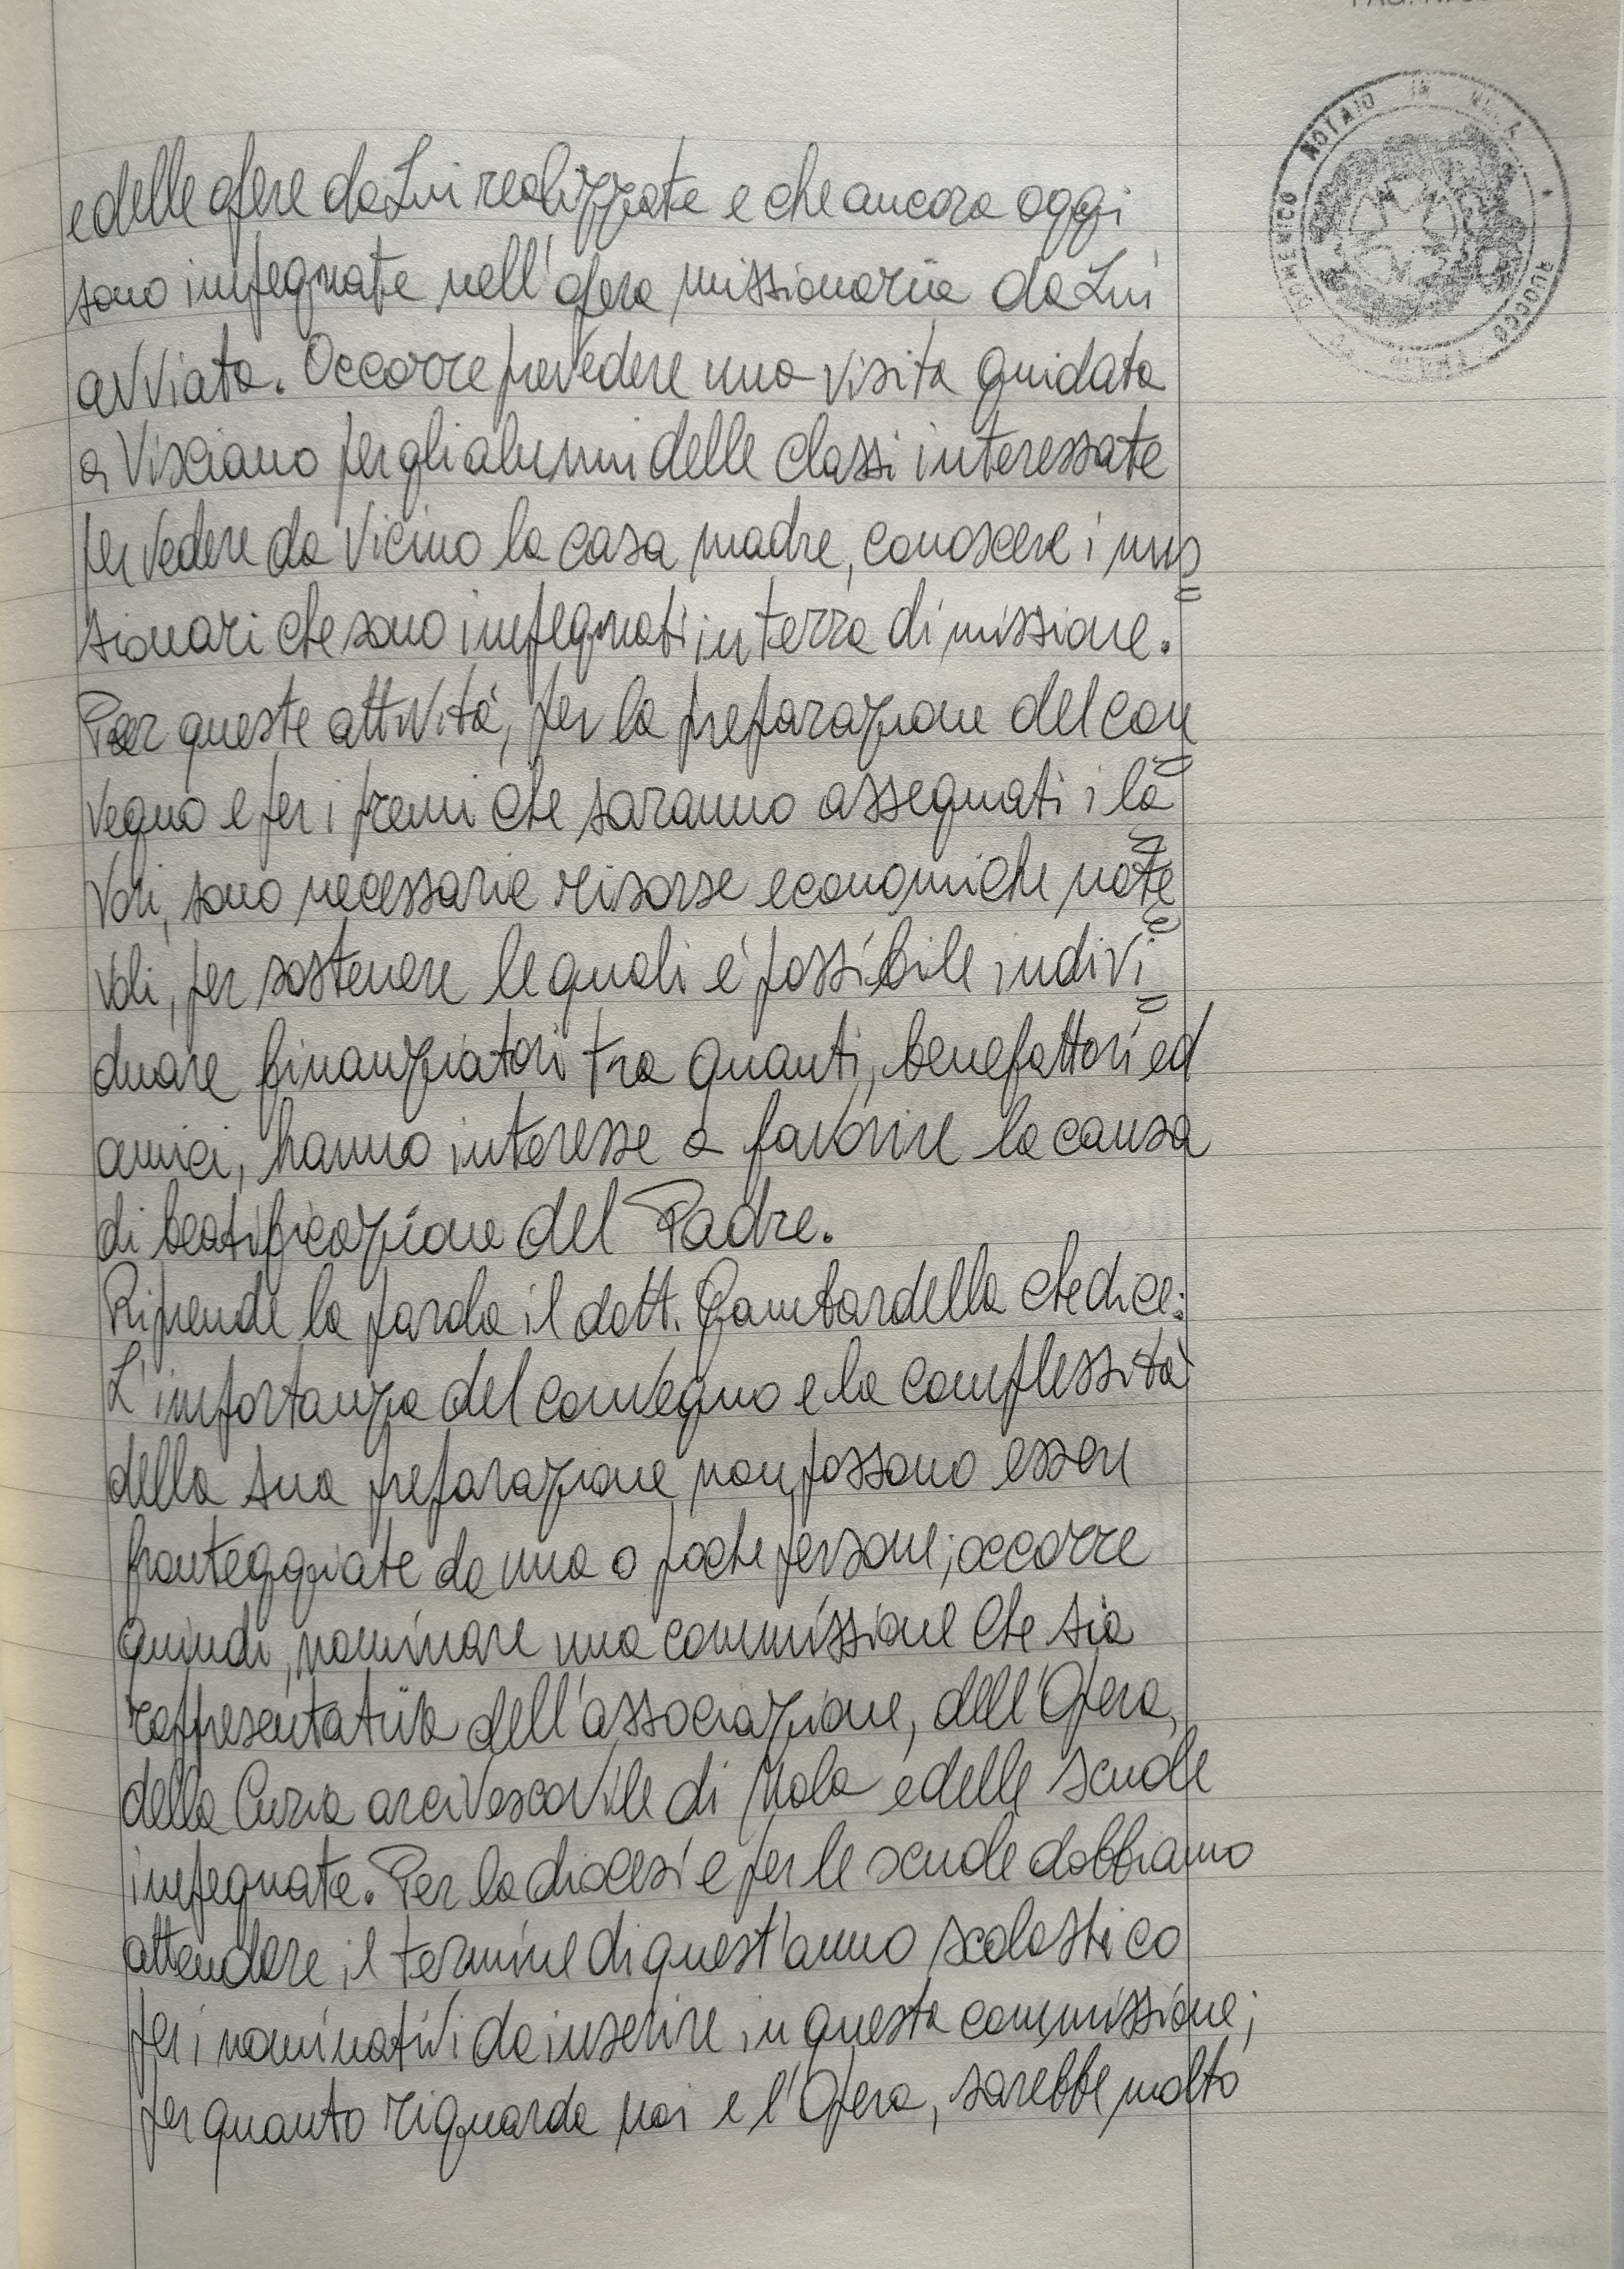 e delle opere da Lui realizzate e che ancora oggi
sono impegnate nell'opera missionaria da Lui
avviata. Occorre prevedere una visita guidata
a Visciano per gli alunni delle classi interessate
per vedere da vicino la casa madre, conoscere i mis=
sionari che sono impegnati in terra di missione.
Per queste attività, per la preparazione del con=
vegno e per i premi che saranno assegnati i la=
vori, sono necessarie risorse economiche note=
voli, per sostenere le quali è possibile indivi=
duare finanziatori tra quanti, benefattori ed
amici, hanno interesse a favorire la causa
di beatificazione del Padre.
Riprende la parola il dott. Gambardella che dice:
L'importanza del convegno e la complessità
della sua preparazione non possono essere
fronteggiate da una o poche persone; occorre
quindi, nominare una commissione che sia
rappresentativa dell'associazione, dell'Opera,
della Curia arcivescovile di Nola e delle scuole
impegnate. Per la diocesi e per le scuole dobbiamo
attendere il termine di quest'anno scolastico
per i nominativi da inserire in questa commissione;
per quanto riguarda noi e l'Opera, sarebbe molto
NOTAIO IN